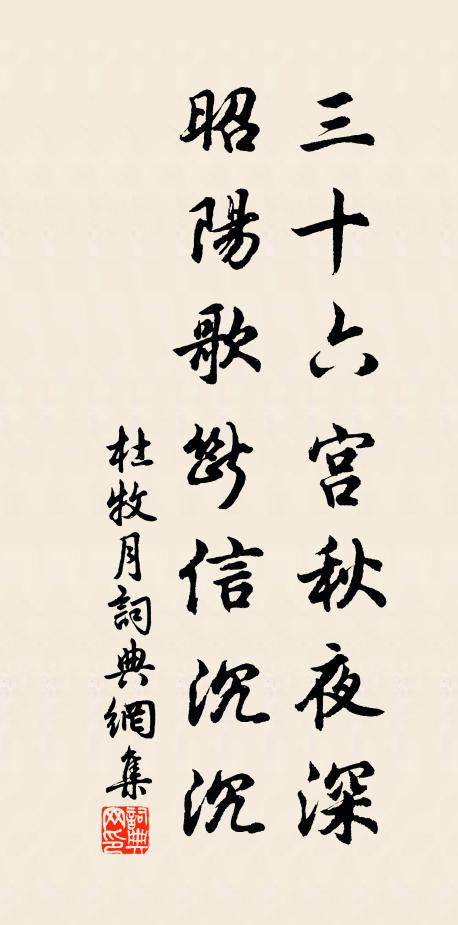 三十六宮秋夜深
昭陽歌斷信沉沉
杜牧月詞典網集
詞典網印